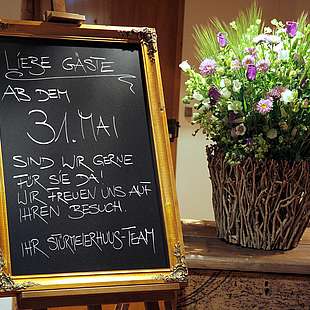 LIEBE GÄSTE
AB DEM
31. MAI
SIND WIR GERNE
FÜR SIE DA!
WIR FREUEN UNS AUF
IHREN BESUCH.
IHR STÜRMEIERHUUS-TEAM